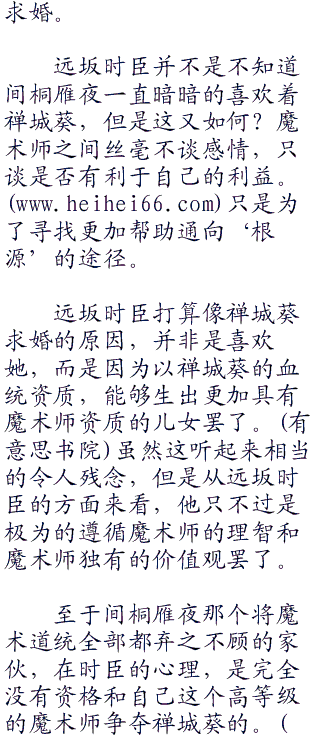 求婚。
远坂时臣并不是不知道
间桐雁夜一直暗暗的喜欢着
禅城葵，但是这又如何？魔
术师之间丝毫不谈感情，只
谈是否有利于自己的利益。
(www.heihei66.com)只是为
了寻找更加帮助通向‘根
源’的途径。
远坂时臣打算像禅城葵
求婚的原因，并非是喜欢
她，而是因为以禅城葵的血
统资质，能够生出更加具有
魔术师资质的儿女罢了。(有
意思书院)虽然这听起来相当
的令人残念，但是从远坂时
臣的方面来看，他只不过是
极为的遵循魔术师的理智和
魔术师独有的价值观罢了。
至于间桐雁夜那个将魔
术道统全部都弃之不顾的家
伙，在时臣的心理，是完全
没有资格和自己这个高等级
的魔术师争夺禅城葵的。(